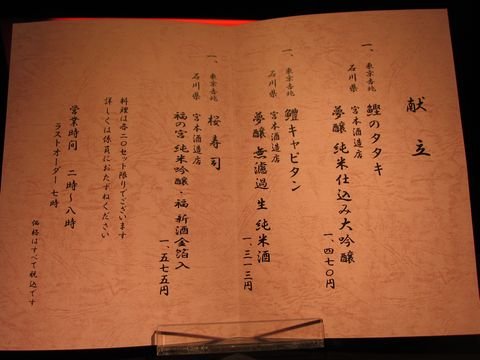 献立
一、
東京吉兆
鰹のタタキ
石川県
宮本酒造店
夢醸 純米仕込み大吟醸
一、四七〇円
一、
東京吉兆
鱧キャピタン
石川県
宮本酒造店
夢醸 無濾過 生 純米酒
一、三一三円
一、
東京吉兆
桜寿司
石川県
宮本酒造店
福の宮 純米吟醸・福 新酒金箔入
一、五七五円
料理は各二〇セット限りでございます
詳しくは係員におたずねください
営業時間 二時〜八時
ラストオーダー七時
価格はすべて税込です